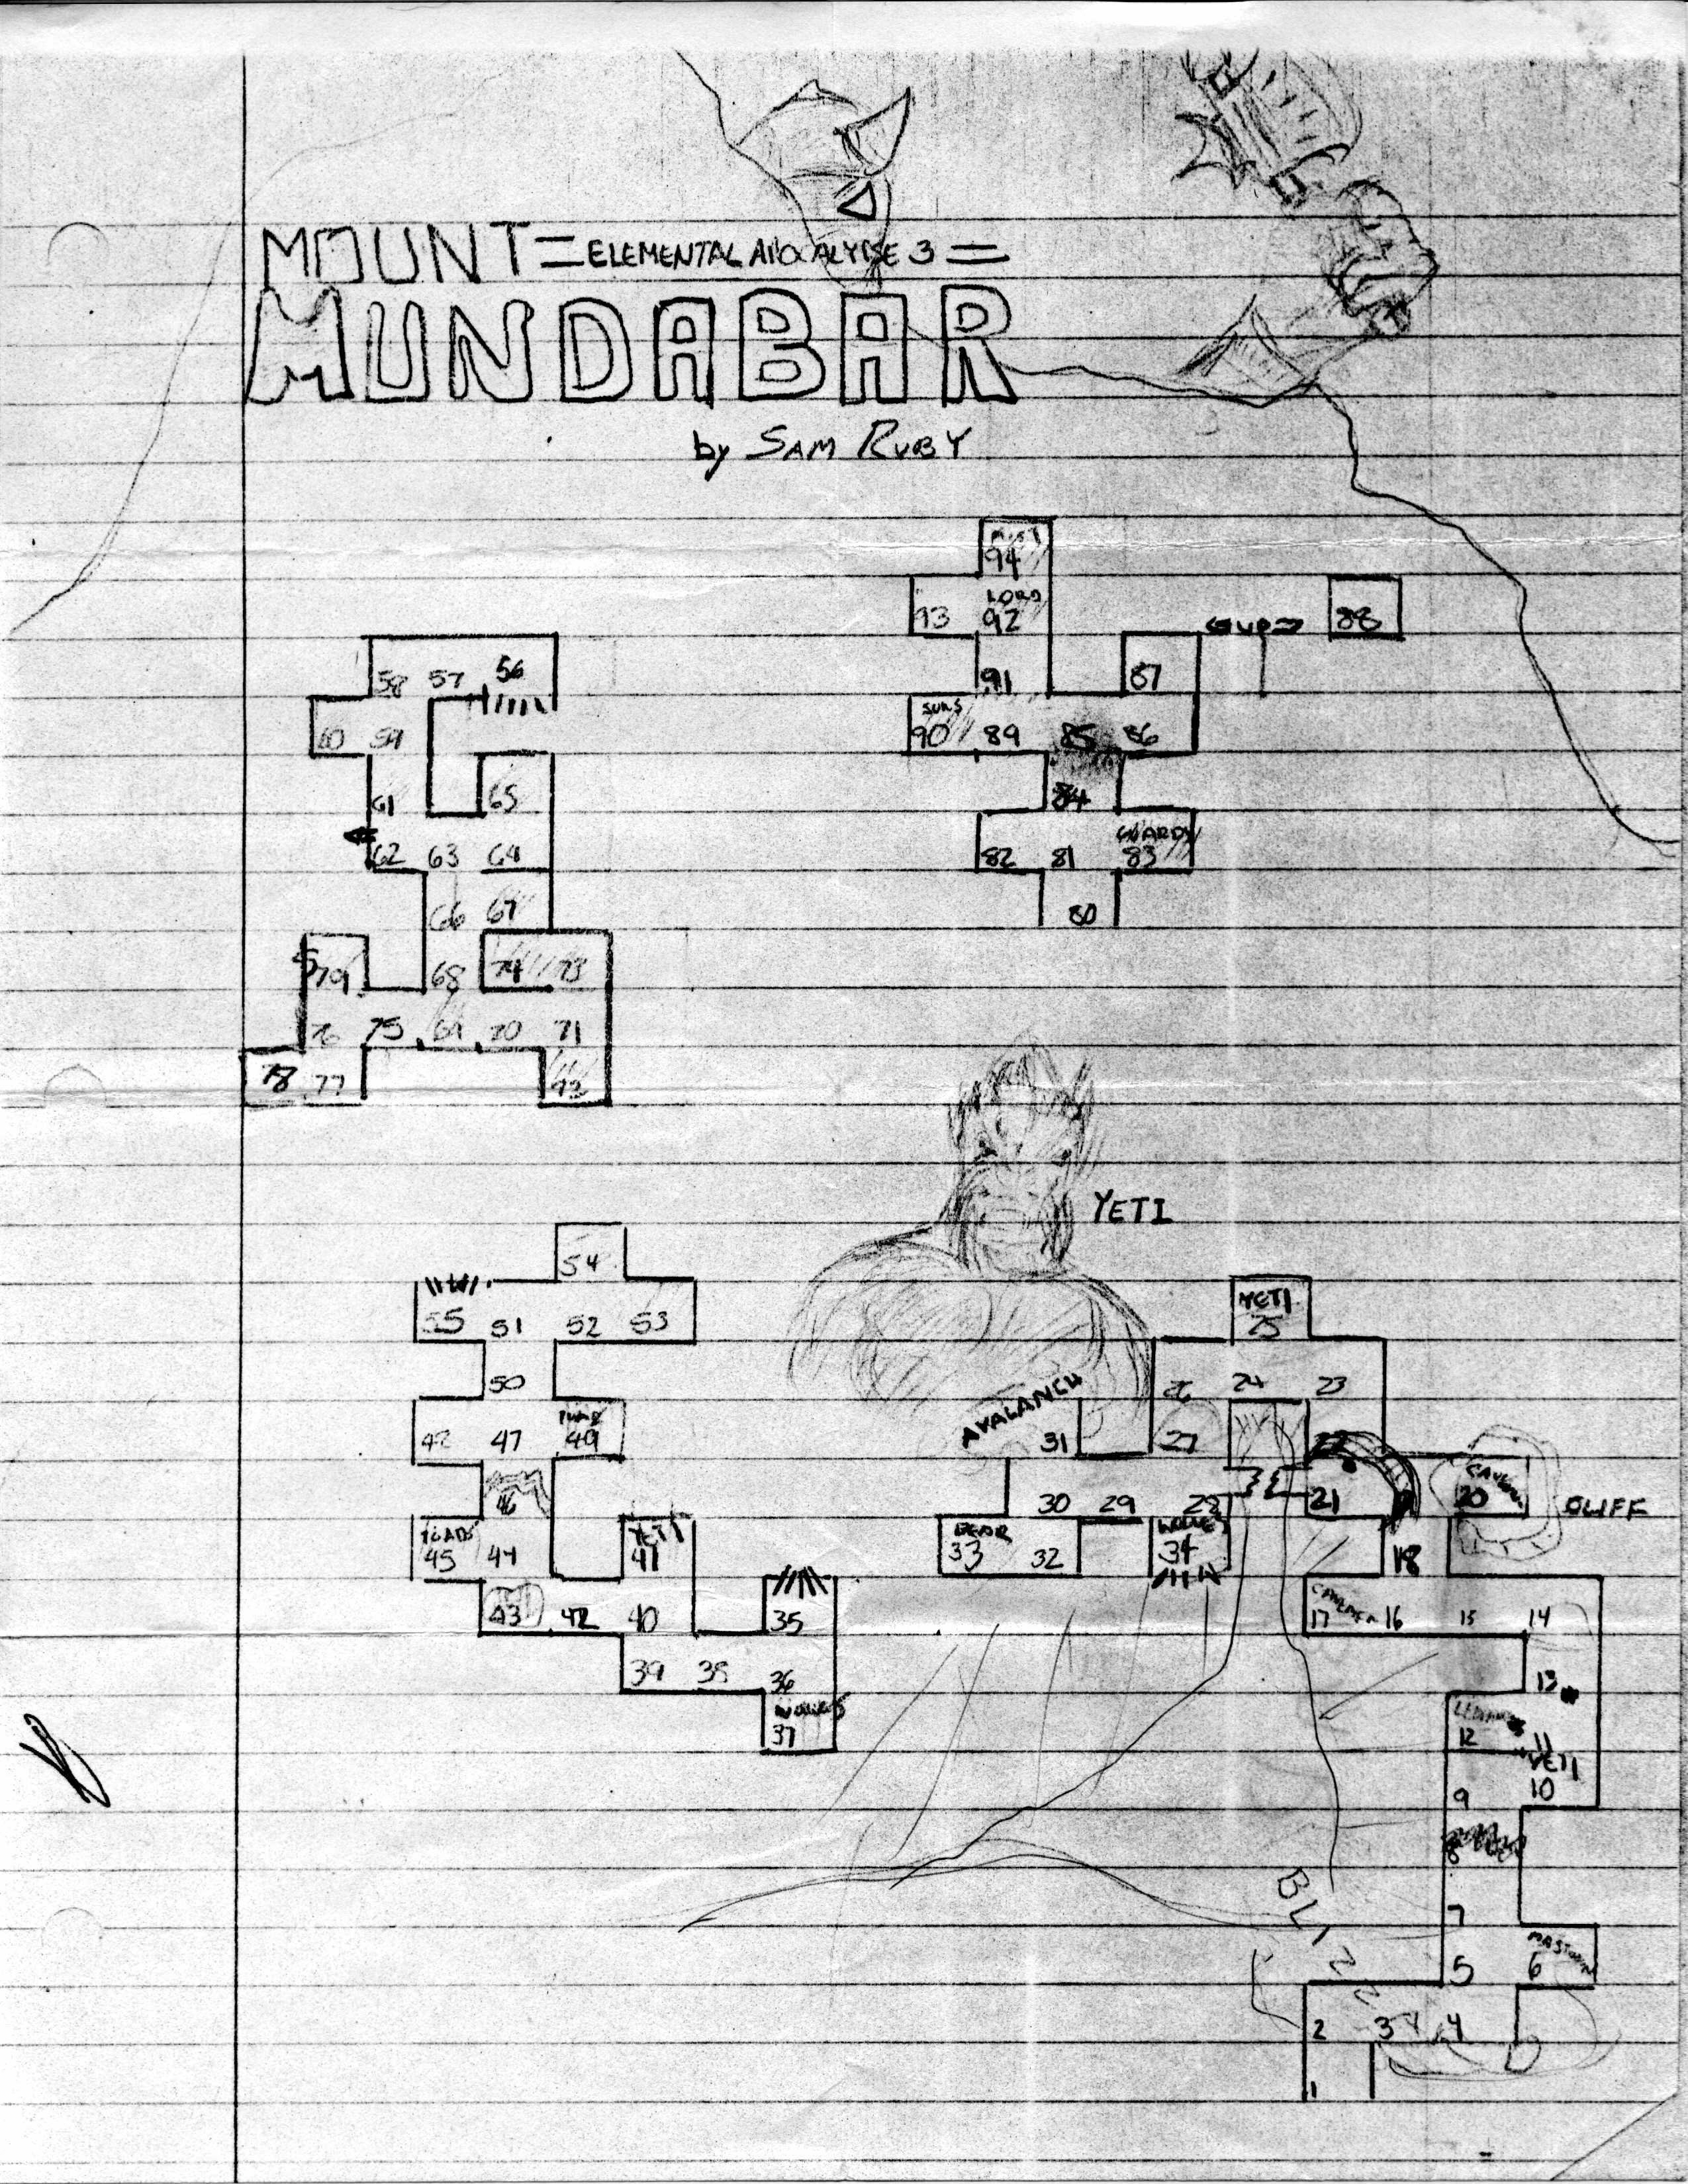 MOUNT =ELEMENTAL APOCALYPSE 3=
MUNDABAR
by SAM RUBY
94
93 LORD 92
UP
88
58 57 56
91
87
60 59
SUNS
90 89 85 86
61 65
84
62 63 64
82 81 GUARDS 83
66 67
80
79 68 74 73
76 75 69 70 71
78 77 72
YETI
54
55 51 52 53
YETI
25
50
26 24 23
AVALANCH
47 49
31 27
46
30 29 28
21
20
CLIFF
45 44
YETI
41
BEAR
33 32
WOLVES
34
18
43 42 40 35
17 16 15 14
39 38 36
13
WOLVES
37
12 11
YETI
9 10
8
7
BLIZZ
MASTODON
5 6
2 3 4
1